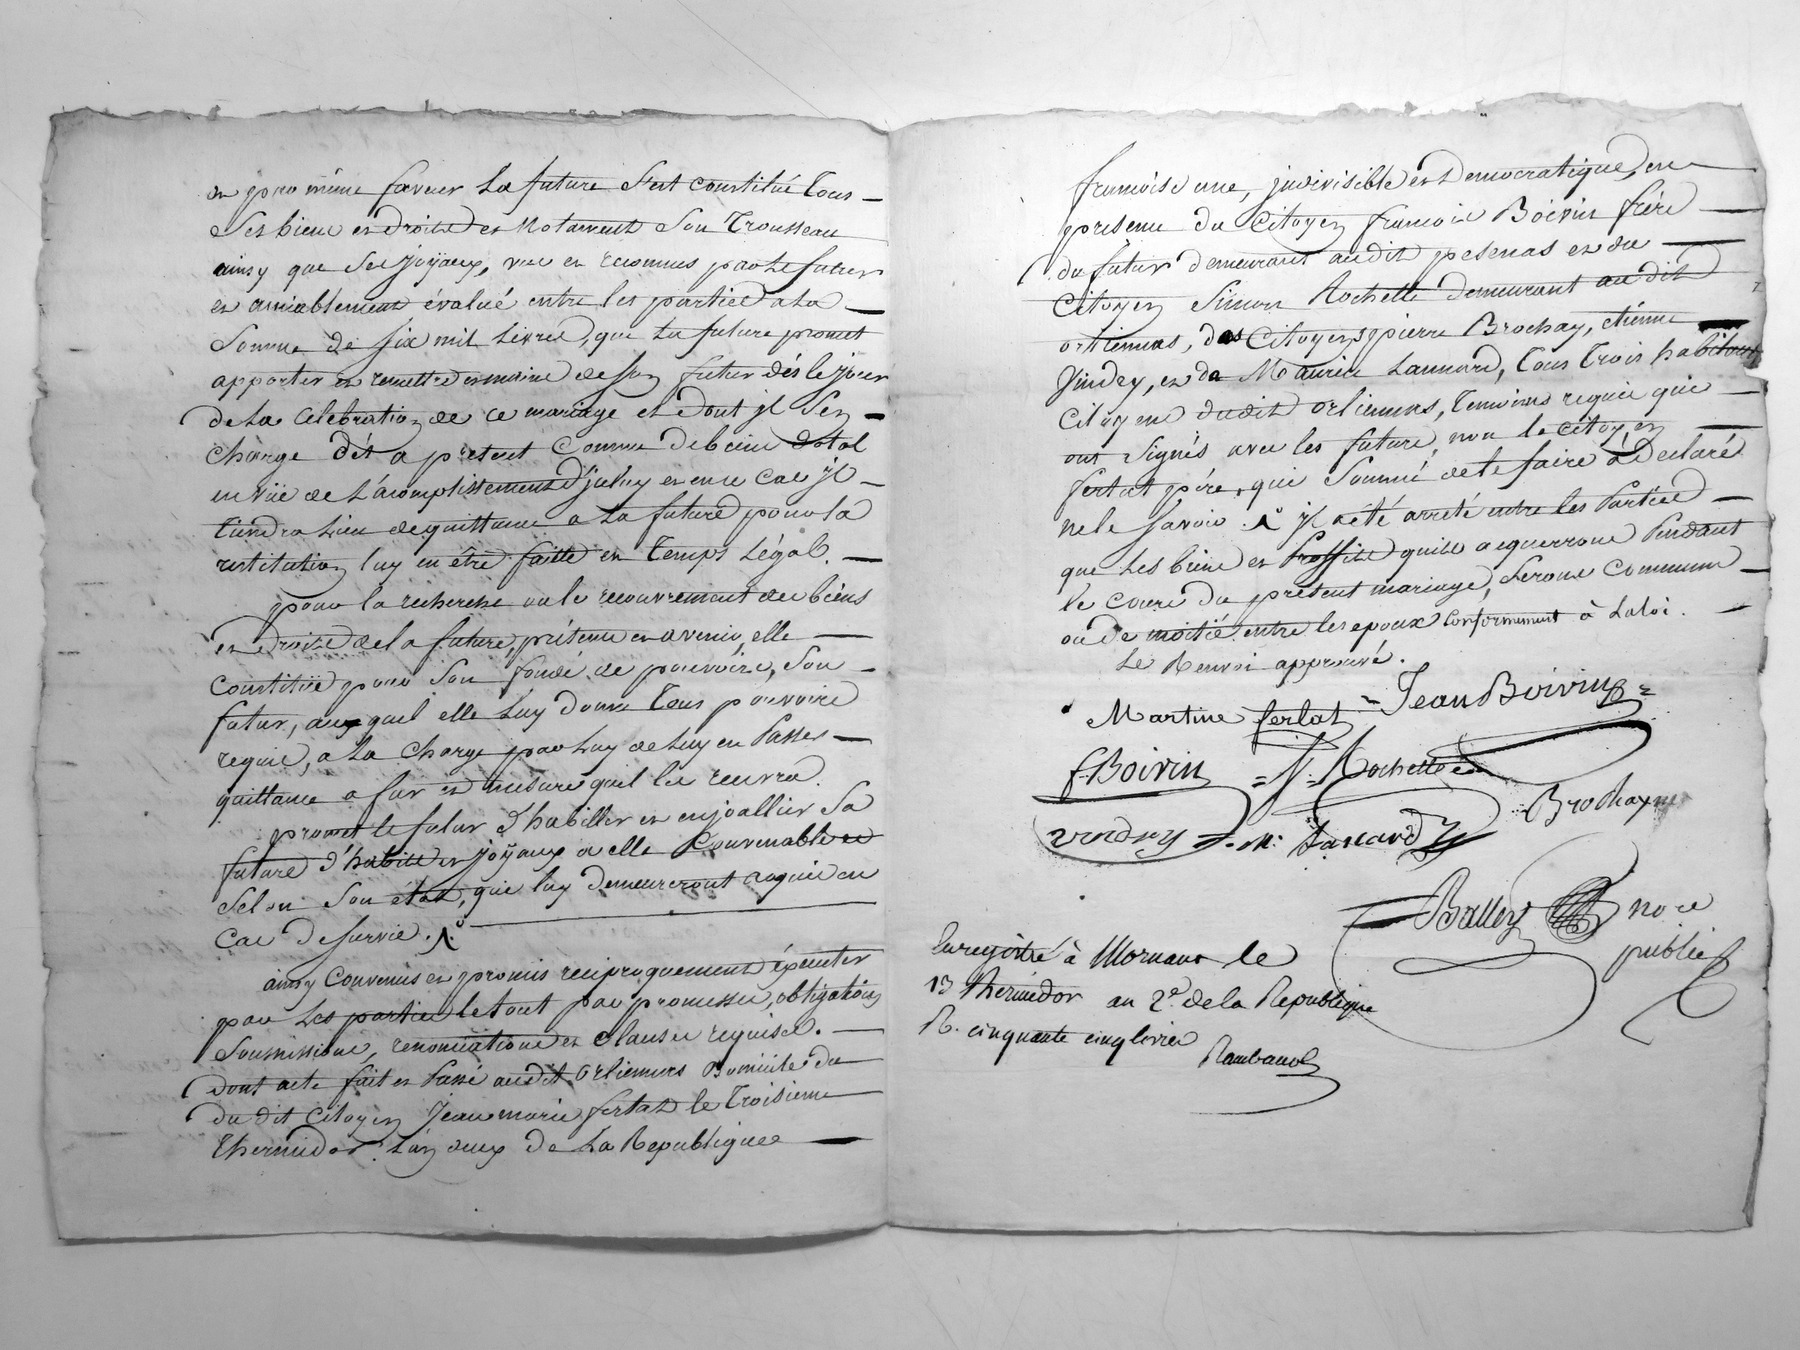 et pour même faveur la future s'est constitué tous
ses biens et droits et notament son trousseau
ainsy que ses joÿaux, vus et reconnus par le futur
et amiablement évalué entre les parties a la
somme de six mil livres, que la future promet
apporter et remettre es mains de son futur dés le jour
de la célébration de ce mariage et dont jl s'en
charge dés a présent comme de biens dotal
en vüe de l'acomplissement d'jceluy et en ce cas jl
tiendra lieu de quittance a la future pour la
restitution luy en être faitte en temps légal.
pour la recherche ou le recouvrement des biens
et droits de la future, présents et avenir, elle
constitüe pour son fondé de pouvoirs, son
futur, auquel elle luy donne tous pouvoirs
requis, a la charge par luy de luy en passer
quittance a fur et mesure qu'il les recevra.
promet le futur d'habiller et enjoallier sa
future d'habits et joÿaux a elle convenable et
selon son état, qui luy demeureront acquis en
cas de survie.
ainsy convenus et promis reciproquement éxecuter
par les parties le tout par promesses, obligations
soumissions, renonciations et clauses requises.
dont acte fait et passé audit orliennas domicile du
du dit citoyen Jean marie fertat le troisieme
thermidor l'an deux de la Republique
francoise une, jndivisible et democratique, en
presence du citoyen francois Boivin frére
du futur demeurant audit pesenas et du
citoyen Simon Rochette demeurant au dit
orliennas, des citoyens pierre Brochay, etienne
Vindry, et de Maurice Lannard, tous trois habitans
citoyens dudit orliennas, temoins requis qui
ont signés avec les futurs, non le citoyen
fertat pére, qui sommé de le faire a declaré
ne le savoir. jl a été arreté entre les parties
que les biens et proffits quils acquerront pendant
le cours du présent mariage, seront communs
ou de moitié entre les epoux conformement à la loi.
Le Renvoi approuvé.
Martine fertat = Jean Boivin =
f. Boivin = S. Rochette
Brochay
vindry = M. Lanard
Balley no re
public
Enregistré à Mornant le
13 thermidor an 2e de la Republique
R. cinquante cinq livres